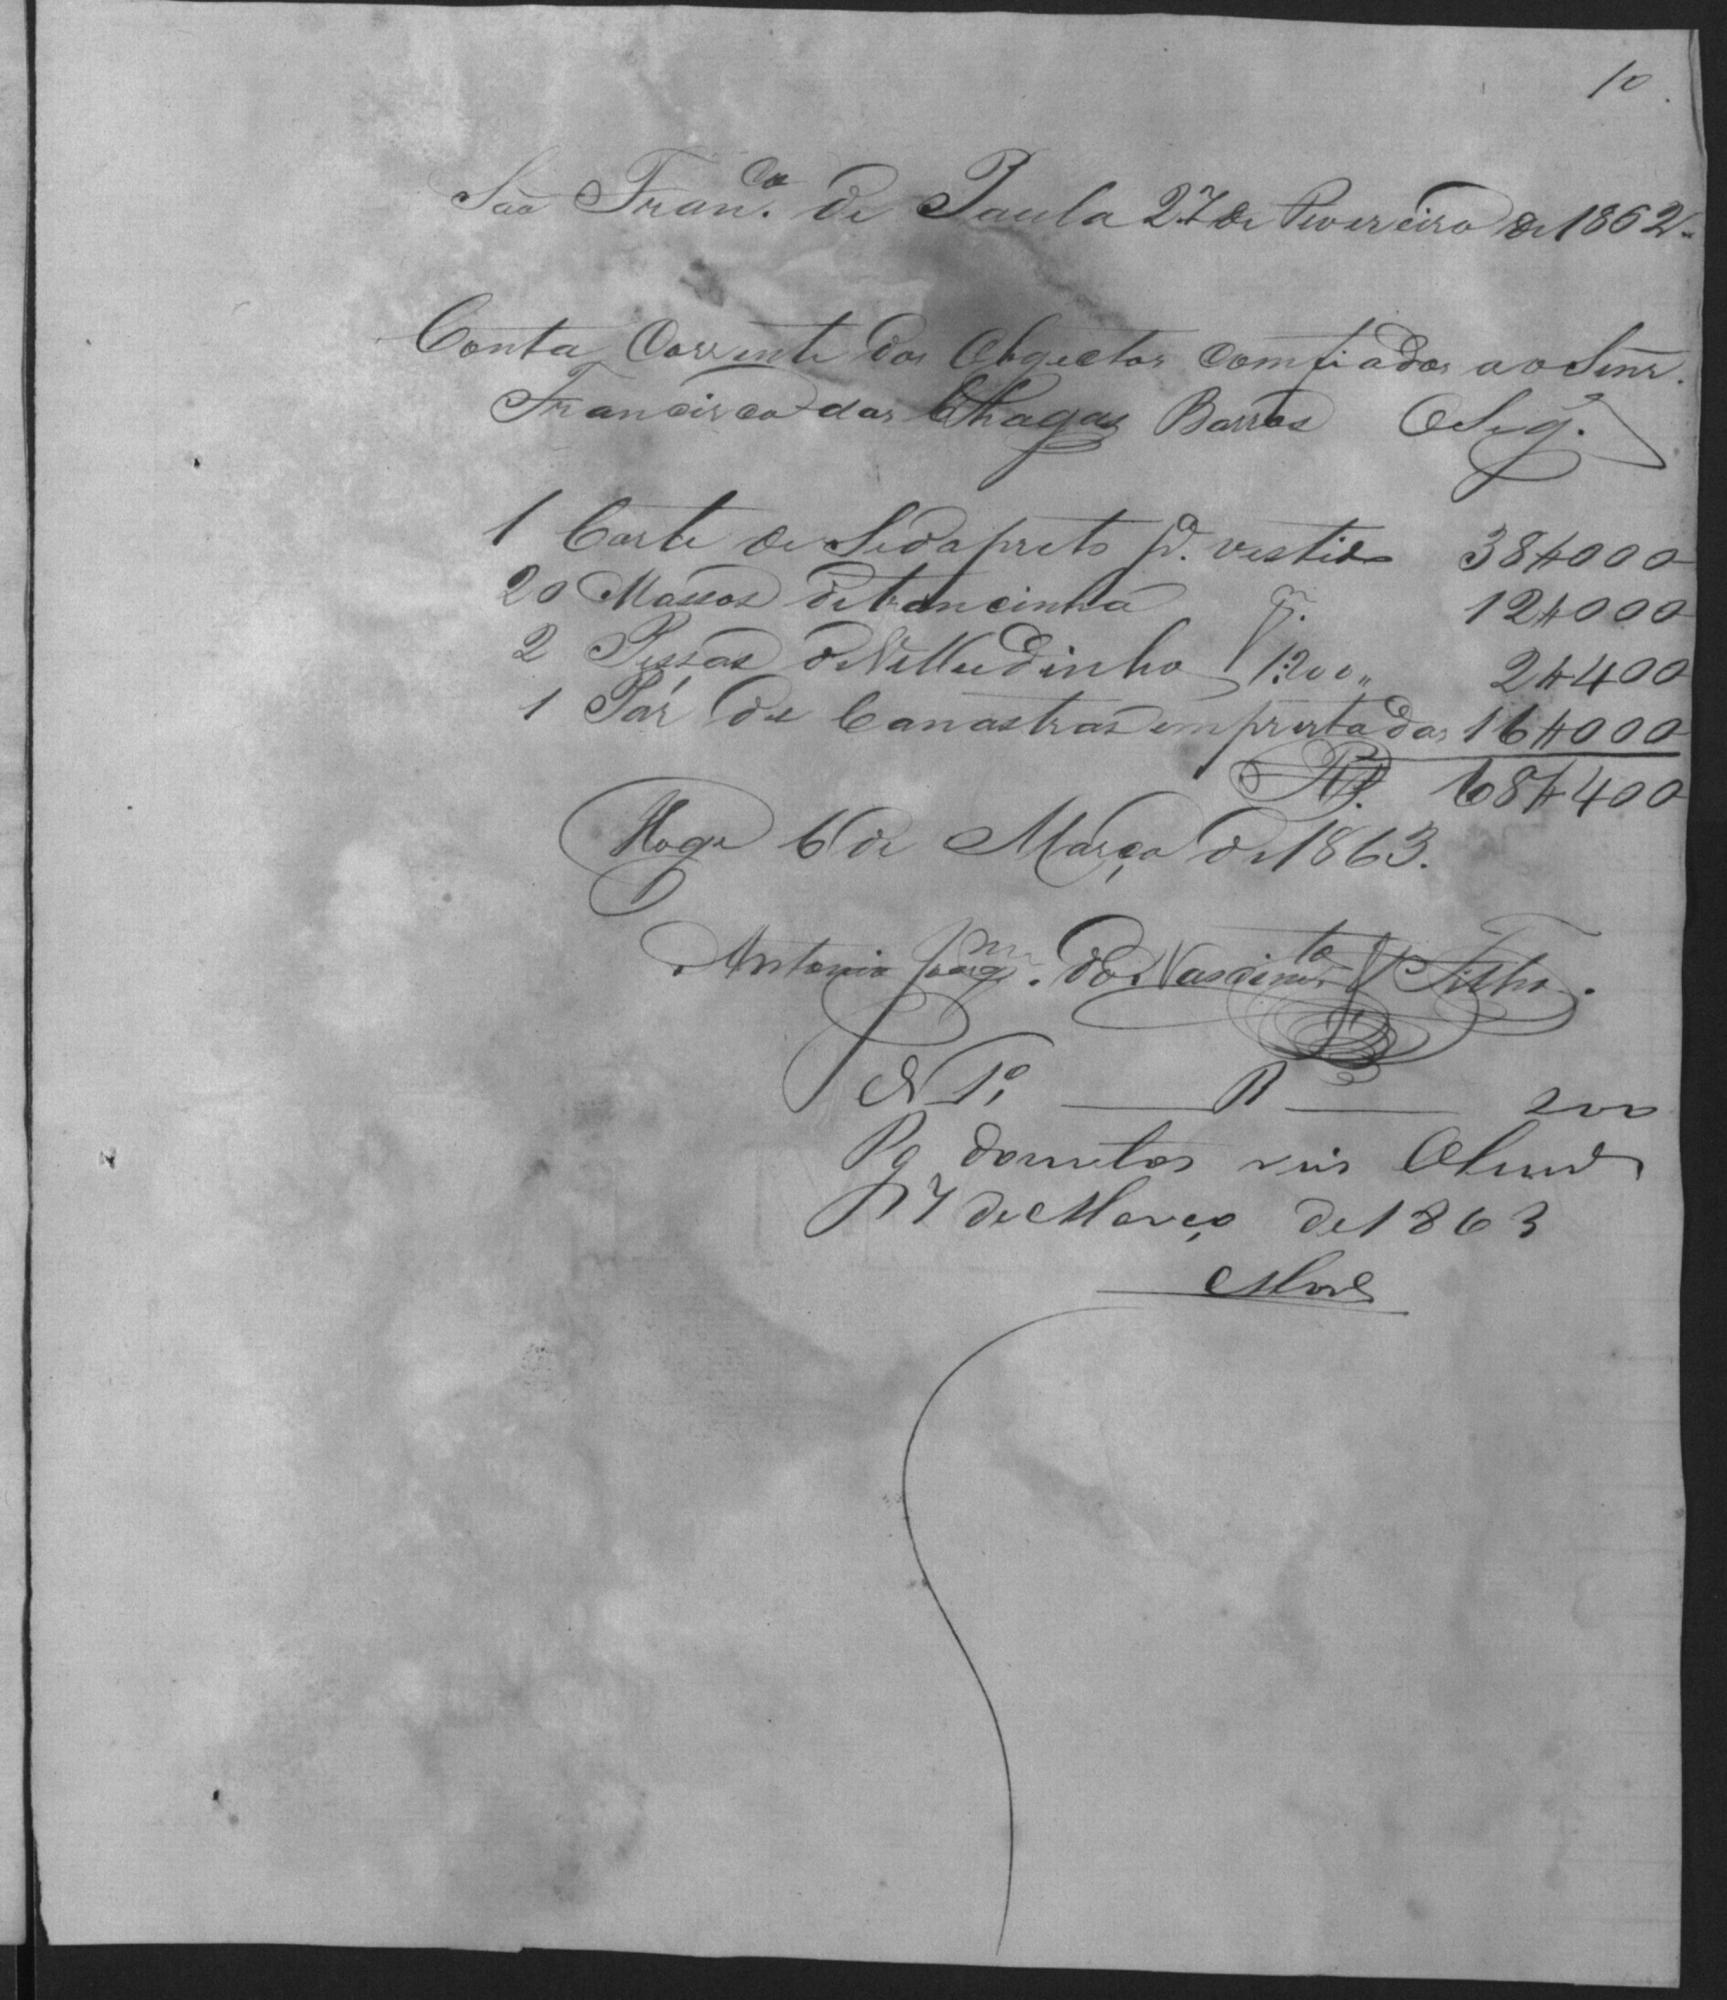 10.
São Fran.co de Paula 27 de Fevereiro de 1862.
Conta Corrente dos Obgectos comfiados ao Senr.
Francisco das Chagas Barros O Seg.e
1 Corte de Seda preto p.a vestido 38#000
20 Massos de trancinha 12#000
2 Pessas de Velludinho 1200" 2#400
1 Pár de Canastras emprestadas 16#000
Rs. 68#400
Hoge 6 de Março de 1863.
Antonio Joaq.m do Nascim.to Filho.
N 1.o R 200
Pg dozentos reis
17 de Março de 1863